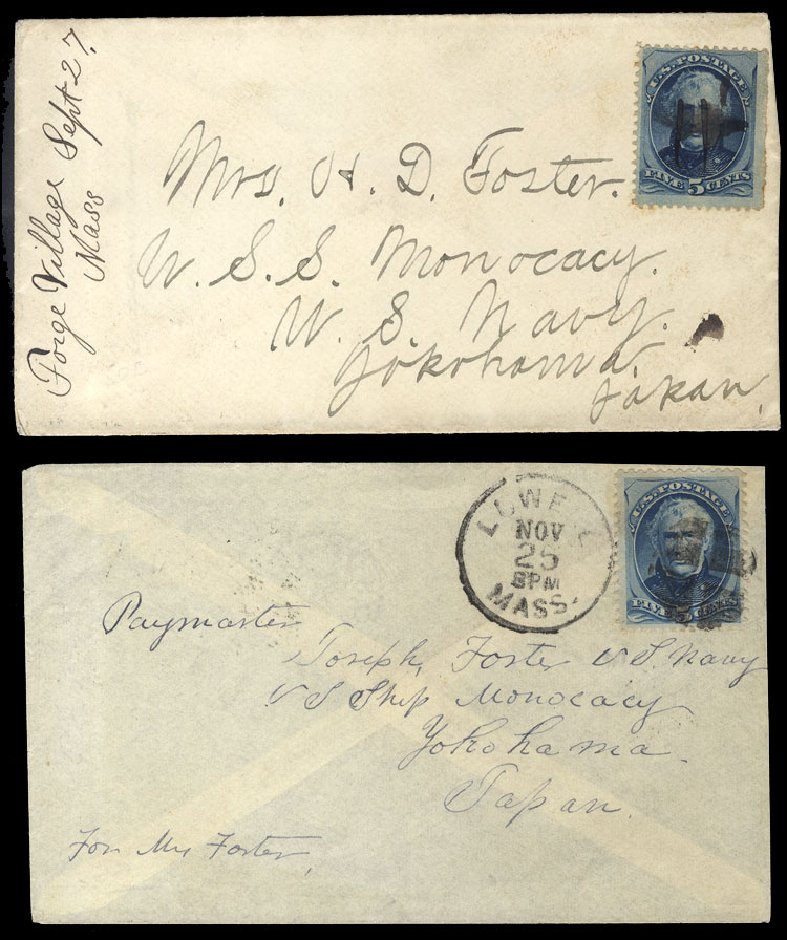 Forge Village Sept 27.
Mass
U.S. POSTAGE
FIVE 5 CENTS
Mrs. H. D. Foster.
U. S. S. Monocacy.
U. S. Navy.
Yokohama.
Japan.
LOWELL
NOV
25
8PM
MASS.
U.S. POSTAGE
FIVE 5 CENTS
Paymaster
Joseph Foster U S. Navy
U S Ship Monocacy
Yokohama.
Japan.
For Mrs Foster,